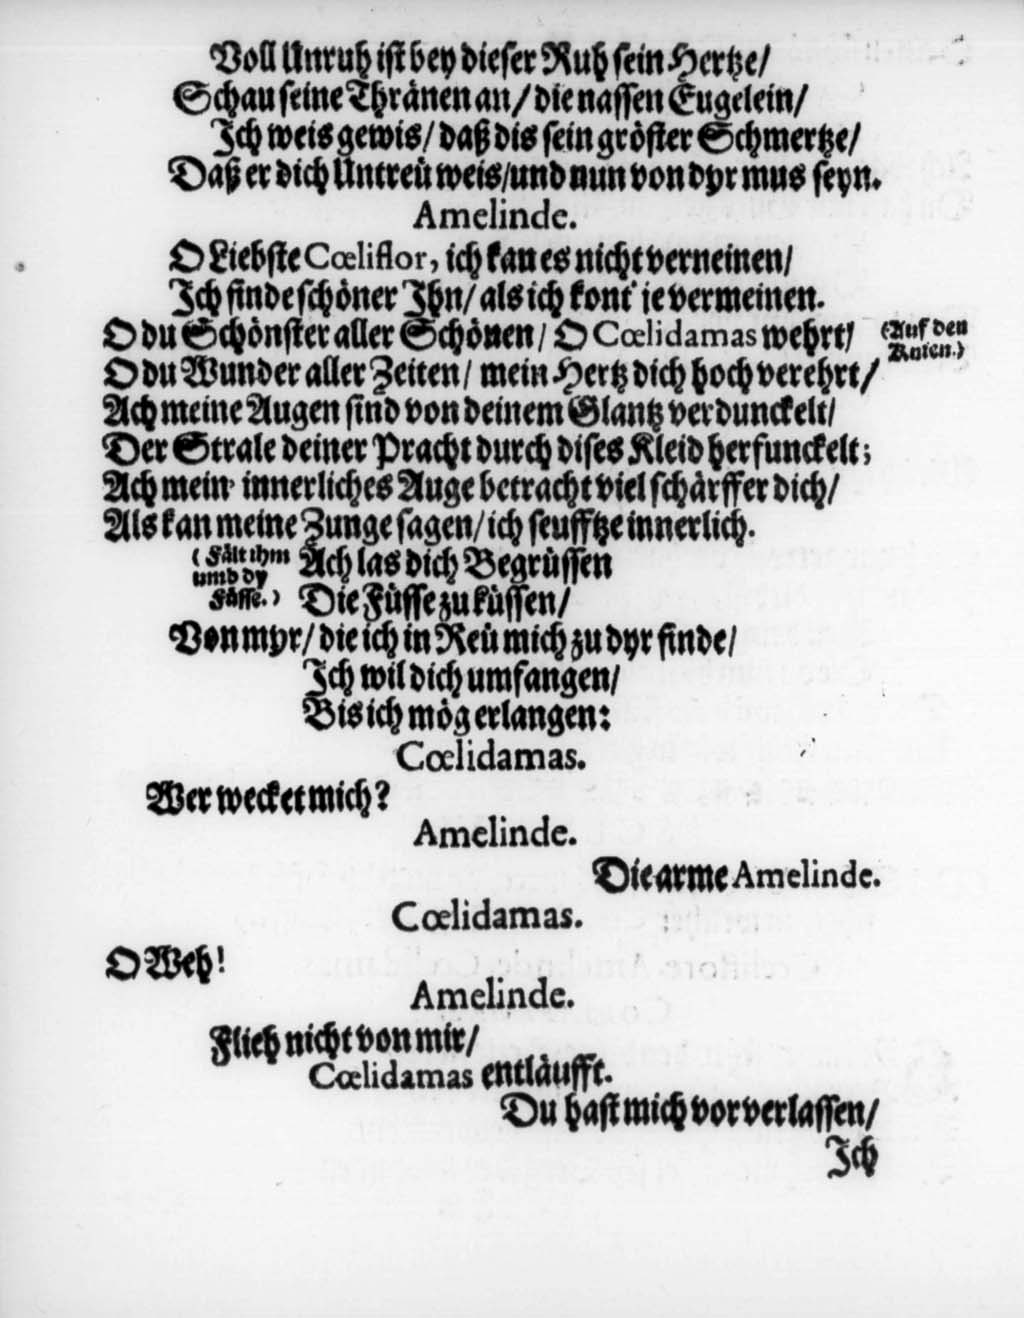 Voll Unruh ist bey dieser Ruh sein Hertze/
Schau seine Thränen an/ die nassen Eugelein/
Ich weis gewis/ daß dis sein gröster Schmertze/
Daß er dich Untreü weis/ und nun von dyr mus seyn.
Amelinde.
O Liebste Cœliflor, ich kan es nicht verneinen/
Ich finde schöner Ihn/ als ich kont' ie vermeinen.
O du Schönster aller Schönen/ O Cœlidamas wehrt/ (Auf den
Knien.)
O du Wunder aller Zeiten/ mein Hertz dich hoch verehrt/
Ach meine Augen sind von deinem Glantz verdunckelt/
Der Strale deiner Pracht durch dises Kleid herfunckelt;
Ach mein' innerliches Auge betracht viel schärffer dich/
Als kan meine Zunge sagen/ ich seufftze innerlich.
(Fält ihm Ach las dich Begrüssen
umb dy
Füsse.) Die Füsse zu küssen/
Von myr/ die ich in Reü mich zu dyr finde/
Ich wil dich umfangen/
Bis ich mög erlangen:
Cœlidamas.
Wer wecket mich?
Amelinde.
Die arme Amelinde.
Cœlidamas.
O Weh!
Amelinde.
Flieh nicht von mir/
Cœlidamas entläufft.
Du hast mich vor verlassen/
Ich